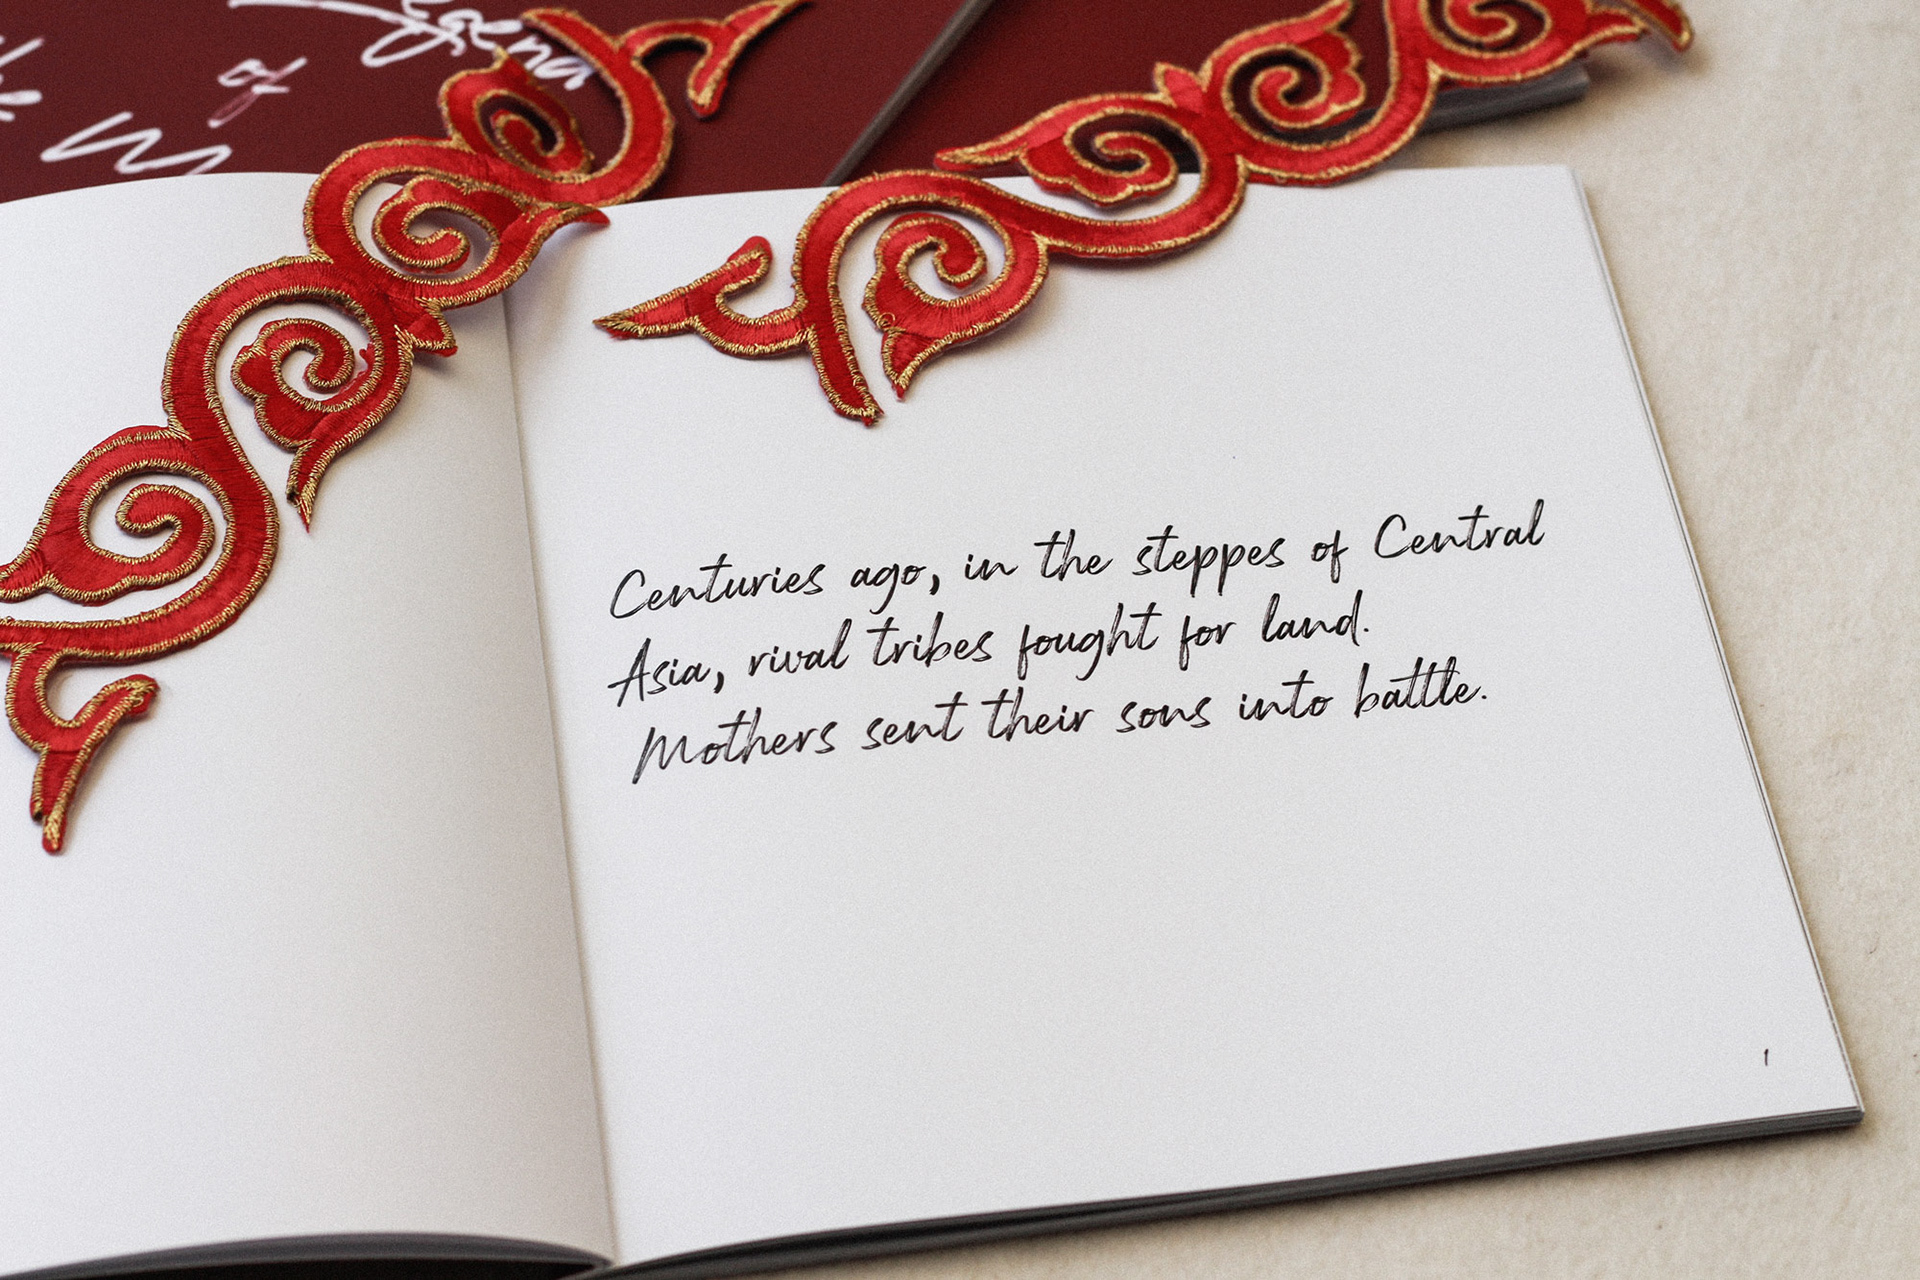 Legend
of
Centuries ago, in the steppes of Central
Asia, rival tribes fought for land.
Mothers sent their sons into battle.
1